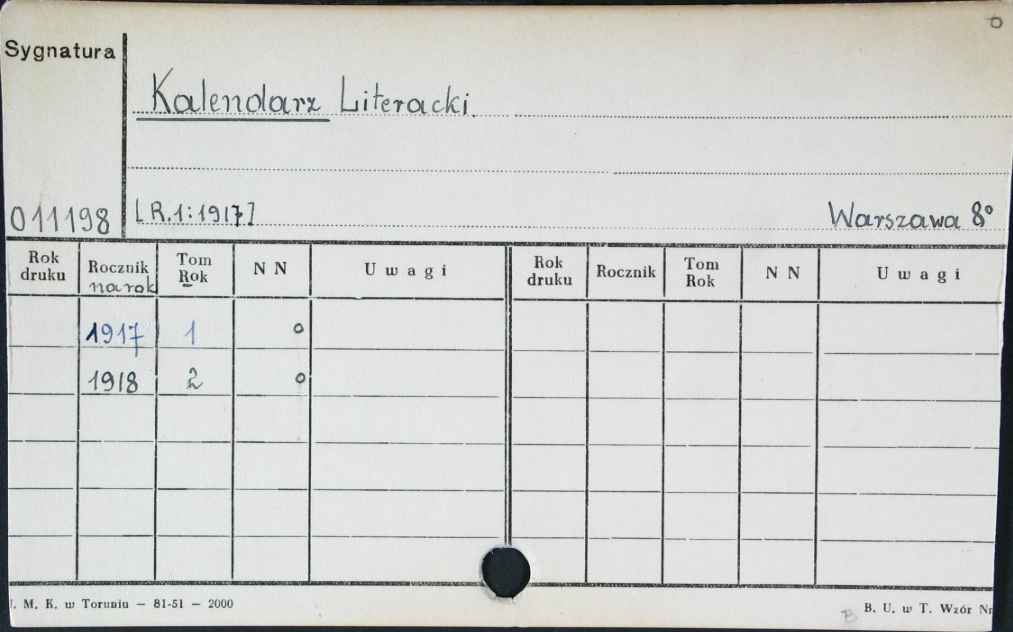 o
Sygnatura
Kalendarz Literacki.
011198 [R.1:1917] Warszawa 8°
Rok druku Rocznik na rok Tom Rok N N Uwagi Rok druku Rocznik Tom Rok N N Uwagi
1917 1 o
1918 2 o
. M. K. w Toruniu — 81-51 — 2000
B B. U. w T. Wzór Nr